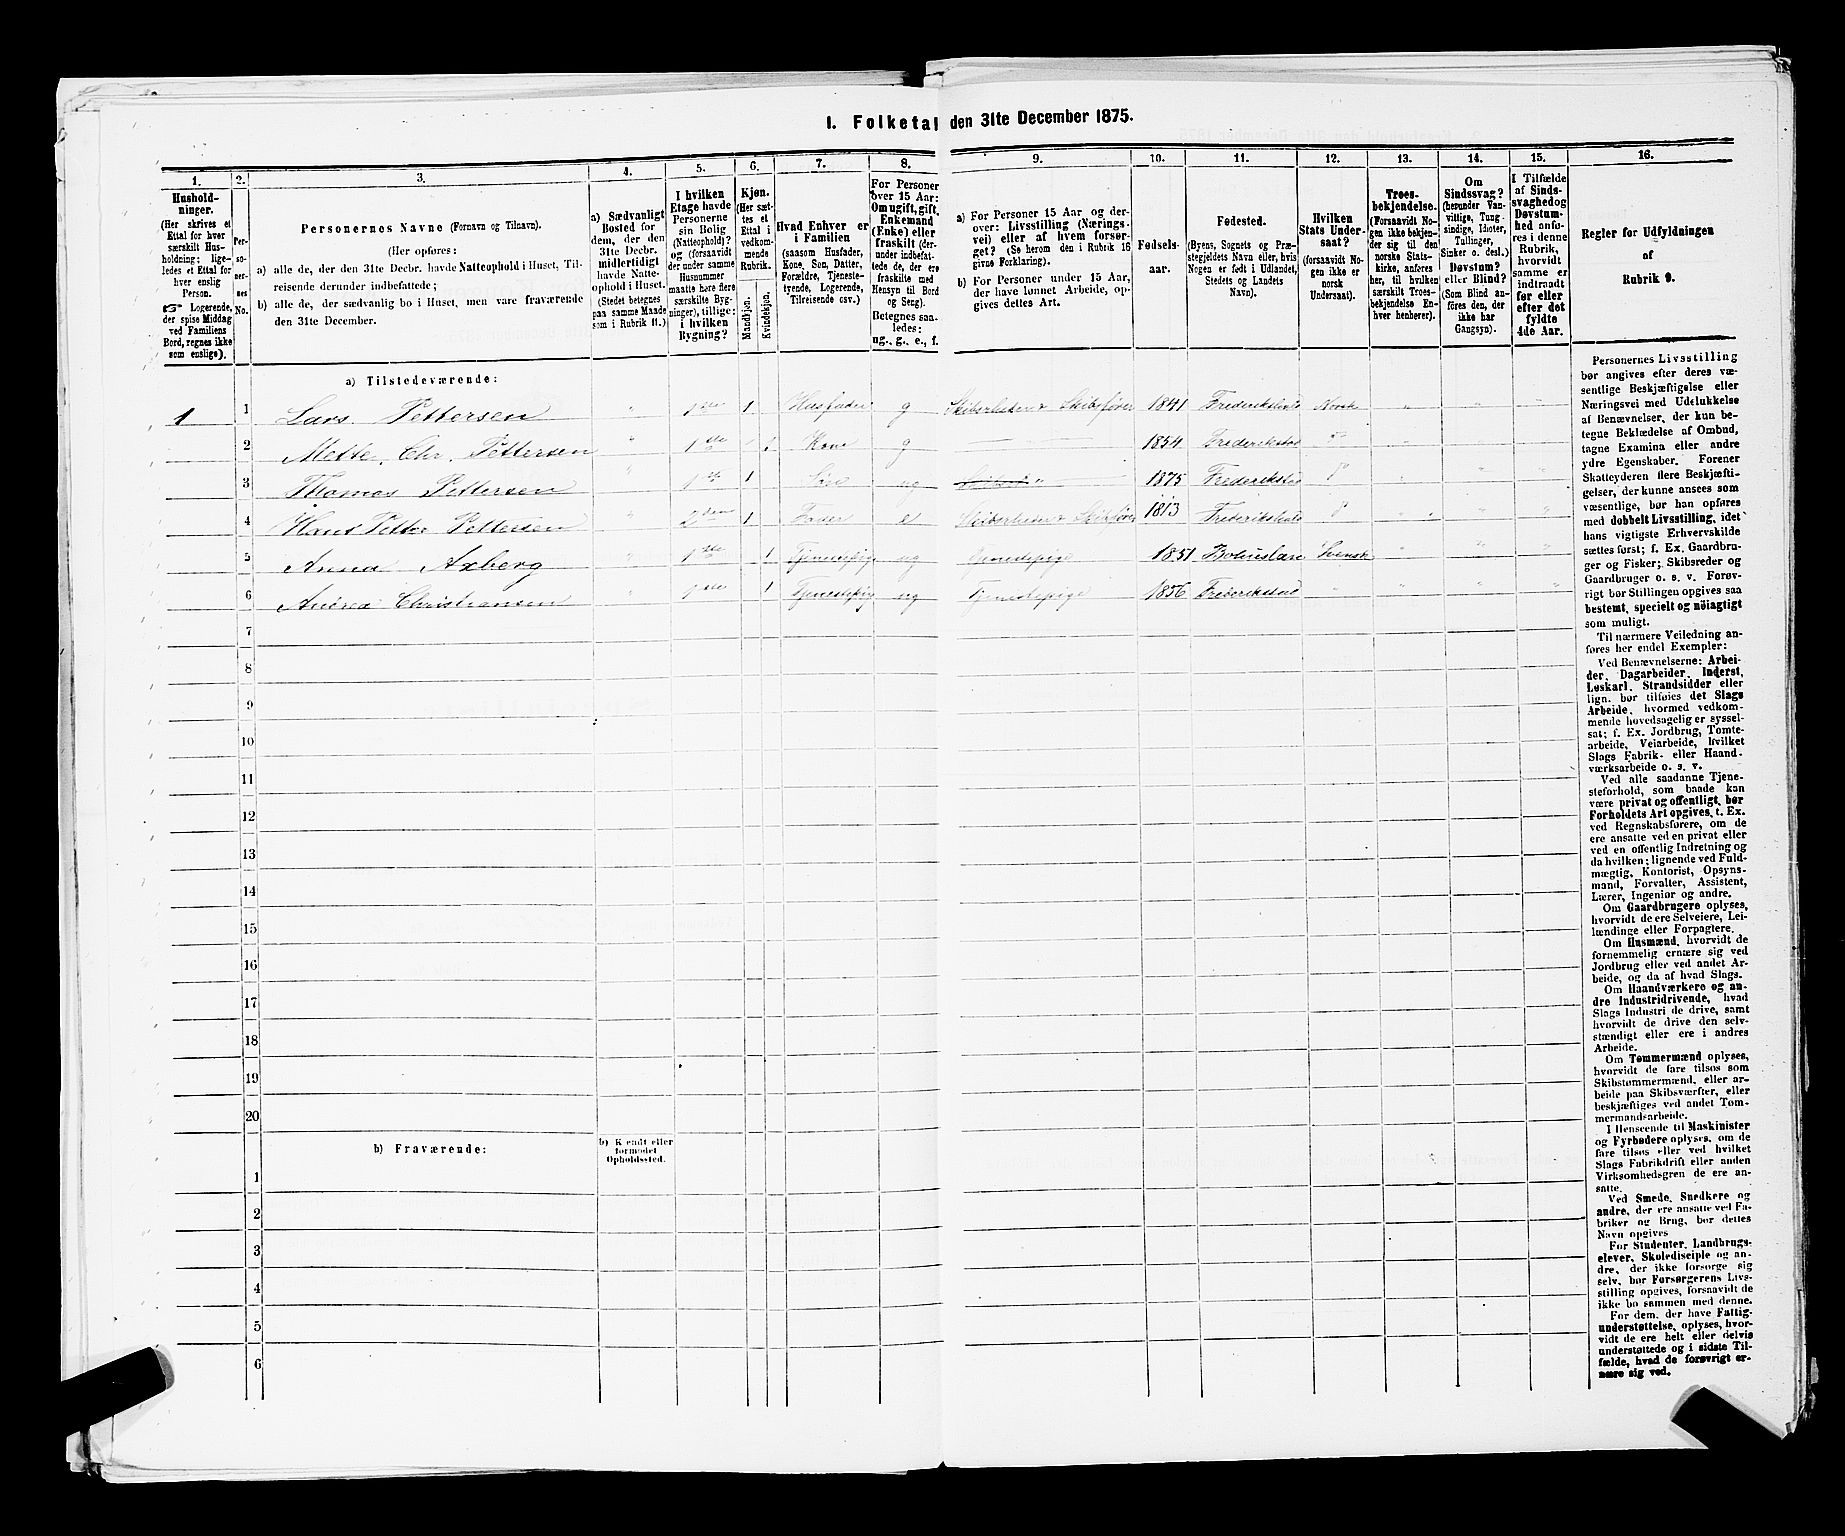 I. Folketal den 31te December 1875.
1. 2. 3. 4. 5. 6. 7. 8. 9. 10. 11. 12. 13. 14. 15. 16.
Hushold-
ninger.
(Her skrives et
Ettal for hver
særskilt Hus-
holdning; lige-
ledes et Ettal for
hver enslig
Person.
☞ Logerende,
der spise Middag
ved Familiens
Bord, regnes ikke
som enslige).
Per-
so-
ner-
nes
No.
Personernes Navne (Fornavn og Tilnavn).
(Her opføres:
a) alle de, der den 31te Decbr. havde Natteophold i Huset, Til-
reisende derunder indbefattede;
b) alle de, der sædvanlig bo i Huset, men vare fraværende
den 31te December.
a) Sædvanligt
Bosted for
dem, der den
31te Decbr.
midlertidigt
havde Natte-
ophold i Huset.
(Stedet betegnes
paa samme Maade
som i Rubrik 11.)
I hvilken
Etage havde
Personerne
sin Bolig
(Natteophold)?
og (forsaavidt
der under samme
Husnummer
maatte høre flere
særskilte Byg-
ninger), tillige:
i hvilken
Bygning?
Kjøn.
(Her sæt-
tes et
Ettal i
vedkom-
mende
Rubrik.
Mandkjøn.
Kvindekjøn.
Hvad Enhver er
i Familien
(saasom Husfader,
Kone, Søn, Datter,
Forældre, Tjeneste-
tyende, Logerende,
Tilreisende osv.)
For Personer
over 15 Aar:
Om ugift, gift,
Enkemand
(Enke) eller
fraskilt (der-
under indbefat-
tede de, der ere
fraskilte med
Hensyn til Bord
og Seng).
Betegnes saa-
ledes:
ug., g., e., f.
a) For Personer 15 Aar og der-
over: Livsstilling (Nærings-
vei) eller af hvem forsør-
get? (Se herom den i Rubrik 16
givne Forklaring).
b) For Personer under 15 Aar,
der have lønnet Arbeide, op-
gives dettes Art.
Fødsels-
aar.
Fødested.
(Byens, Sognets og Præ-
stegjeldets Navn eller, hvis
Nogen er født i Udlandet,
Stedets og Landets
Navn).
Hvilken
Stats Under-
saat?
(forsaavidt No-
gen ikke er
norsk
Undersaat).
Troes-
bekjendelse.
(Forsaavidt No-
gen ikke bekjen-
der sig til den
norske Stats-
kirke, anføres
her, til hvilken
særskilt Troes-
bekjendelse En-
hver henhører).
Om
Sindssvag?
(herunder Van-
vittige, Tung-
sindige, Idioter,
Tullinger,
Sinker o. desl.)
Døvstum?
eller Blind?
(Som Blind an-
føres den, der
ikke har
Gangsyn).
I Tilfælde
af Sinds-
svaghed og
Døvstum-
hed anfø-
res i denne
Rubrik,
hvorvidt
samme er
indtraadt
før eller
efter det
fyldte
4de Aar.
Regler for Udfyldningen
af
Rubrik 9.
a) Tilstedeværende:
1 1 Lars Pettersen " 1ste 1 Husfader g Skibsrheder & Skibsfører 1841 Frederikshald Norsk " "
2 Mette Chr. Pettersen " 1ste 1 Kone g 1854 Frederikstad do "
3 Thomas Pettersen " 1ste 1 Søn ug " 1875 Frederikstad do " "
4 Hans Petter Pettersen " 2den 1 Fader e Skibsrheder & Skibsfører 1813 Frederikshald do " " " "
5 Anna Axberg " 1ste 1 Tjenestepige ug Tjenestepige 1851 Bohuslæn Svensk " " "
6 Andrea Christiansen " 1ste 1 Tjenestepige ug Tjenestepige 1856 Frederikstad " " " "
7
8
9
10
11
12
13
14
15
16
17
18
19
20
b) Fraværende:
b) Kjendt eller
formodet
Opholdssted.
1
2
3
4
5
6
Personernes Livsstilling
bør angives efter deres væ-
sentlige Beskjæftigelse eller
Næringsvei med Udelukkelse
af Benævnelser, der kun be-
tegne Beklædelse af Ombud,
tagne Examina eller andre
ydre Egenskaber. Forener
Skatteyderen flere Beskjæfti-
gelser, der kunne ansees som
væsentlige, bør han opføres
med dobbelt Livsstilling, idet
hans vigtigste Erhvervskilde
sættes først; f. Ex. Gaardbru-
ger og Fisker; Skibsreder og
Gaardbruger o. s. v. Forøv-
rigt bør Stillingen opgives saa
bestemt, specielt og nøiagtigt
som muligt.
Til nærmere Veiledning an-
føres her endel Exempler:
Ved Benævnelserne: Arbei-
der, Dagarbeider, Inderst,
Løskarl, Strandsidder eller
lign. bør tilføies det Slags
Arbeide, hvormed vedkom-
mende hovedsagelig er syssel-
sat; f. Ex. Jordbrug, Tomte-
arbeide, Veiarbeide, hvilket
Slags Fabrik- eller Haand-
værksarbeide o. s. v.
Ved alle saadanne Tjene-
steforhold, som baade kan
være privat og offentligt, bør
Forholdets Art opgives, t. Ex.
ved Regnskabsførere, om de
ere ansatte ved en privat eller
ved en offentlig Indretning og
da hvilken; lignende ved Fuld-
mægtig, Kontorist, Opsyns-
mand, Forvalter, Assistent,
Lærer, Ingeniør og andre.
Om Gaardbrugere oplyses,
hvorvidt de ere Selveiere, Lei-
lændinge eller Forpagtere.
Om Husmænd, hvorvidt de
fornemmelig ernære sig ved
Jordbrug eller ved andet Ar-
beide, og da af hvad Slags.
Om Haandværkere og an-
dre Industridrivende, hvad
Slags Industri de drive, samt
hvorvidt de drive den selv-
stændigt eller ere i andres
Arbeide.
Om Tømmermænd oplyses,
hvorvidt de fare tilsøs som
Skibstømmermænd, eller ar-
beide paa Skibsværfter, eller
beskjæftiges ved andet Tøm-
mermandsarbeide.
I Henseende til Maskinister
og Fyrbødere oplyses, om de
fare tilsøs eller ved hvilket
Slags Fabrikdrift eller anden
Virksomhedsgren de ere an-
satte.
Ved Smede, Snedkere og
andre, der ere ansatte ved Fa-
briker og Brug, bør dettes
Navn opgives
For Studenter, Landbrugs-
elever, Skoledisciple og an-
dre, der ikke forsørge sig
selv, bør Forsørgerens Livs-
stilling opgives, forsaavidt de
ikke bo sammen med denne.
For dem, der have Fattig-
understøttelse, oplyses, hvor-
vidt de ere helt eller delvis
understøttede og i sidste Til-
fælde, hvad de forøvrigt er-
nære sig ved.